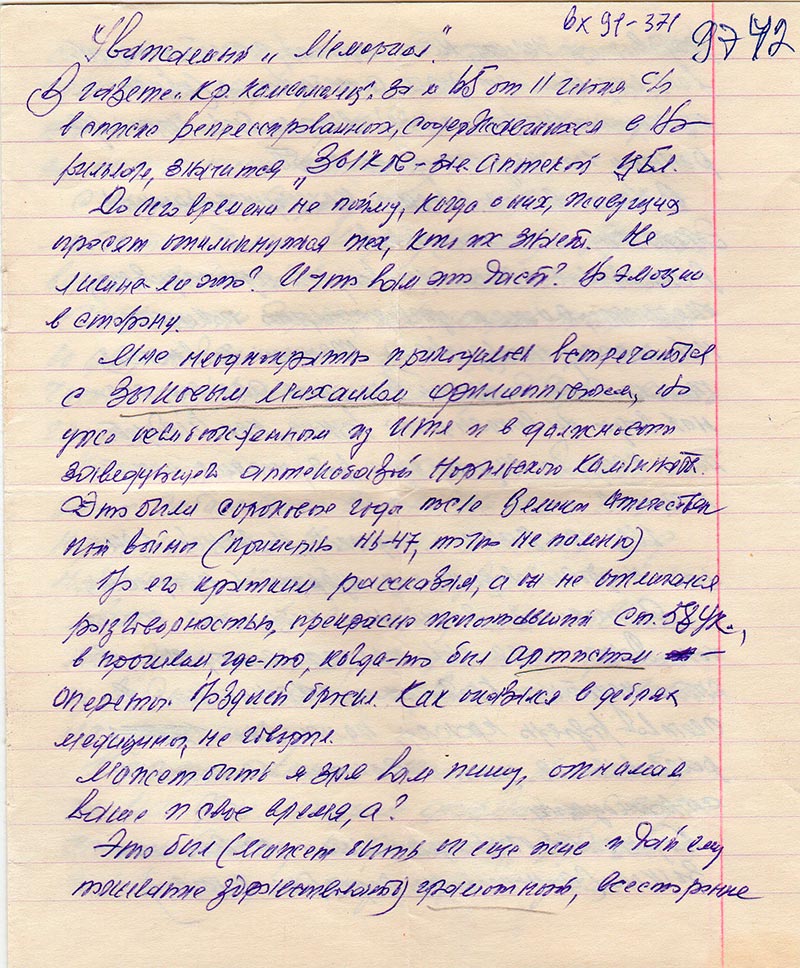 Вх 91-371
9742
Уважаемый „Мемориал".
В газете „Кр. Комсомолец", за № 65 от 11 июня с/г
в списке репрессированных, содержащихся в Но-
рильлаге, значится „Зыков – зав. Аптекой ЦБЛ.
До сего времени не пойму, когда о них, живущих
просят откликнуться тех, кто их знает. Не
лишне-ли это? И что вам это даст? Но эмоции
в сторону.
Мне неоднократно приходилось встречаться
с Зыковым Михаилом Филипповичем, но
уже освобожденным из ИТЛ и в должности
заведующего аптекобазой Норильского Комбината.
Это были сороковые годы после Великой Отечествен
ной войны (примерно 46-47, точно не помню)
По его кратким рассказам, а он не отличался
разговорчивостью, прекрасно испытавший ст. 58 УК.,
в прошлом, где-то, когда-то был артистом –
оперетты. Грудней бросил. Как оказался в дебрях
медицины, не говорил.
Может быть я зря вам пишу, отнимая
ваше и свое время, а?
Это был (может быть он еще жив и дай ему
здравствовать) грамотный, всесторонне